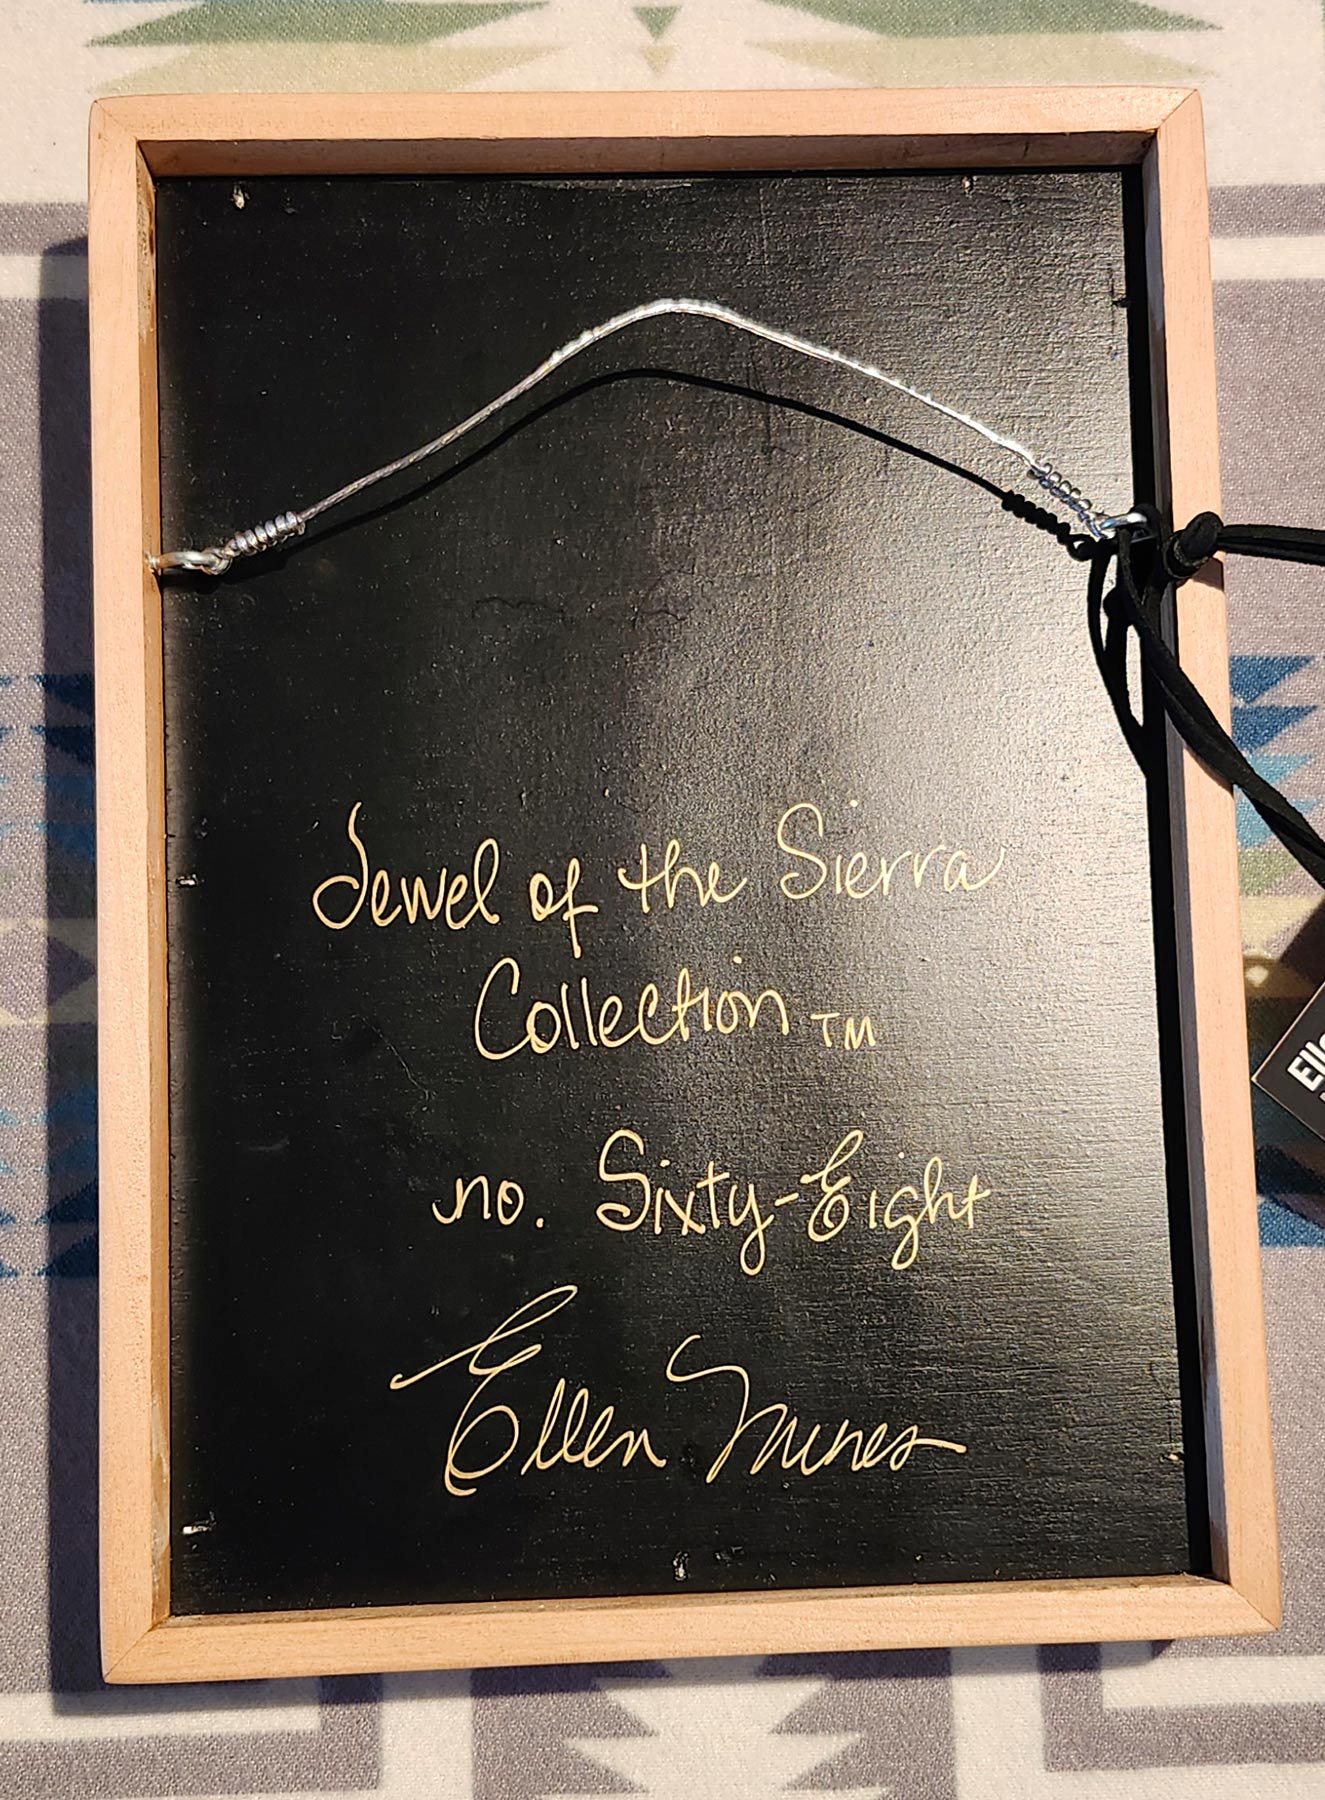 Jewel of the Sierra
Collection TM
no. Sixty-Eight
Ellen